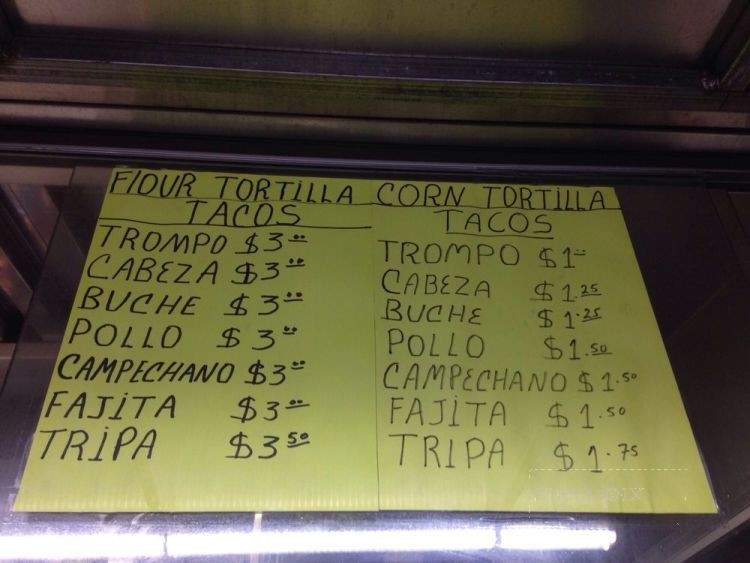 FlOUR TORTILLA
TACOS
TROMPO $3.00
CABEZA $3.00
BUCHE $3.00
POLLO $3.00
CAMPECHANO $3.00
FAJiTA $3.00
TRiPA $3.50
CORN TORTILLA
TACOS
TROMPO $1.00
CABEZA $1.25
BUCHE $1.25
POLLO $1.50
CAMPECHANO $1.50
FAJITA $1.50
TRIPA $1.75